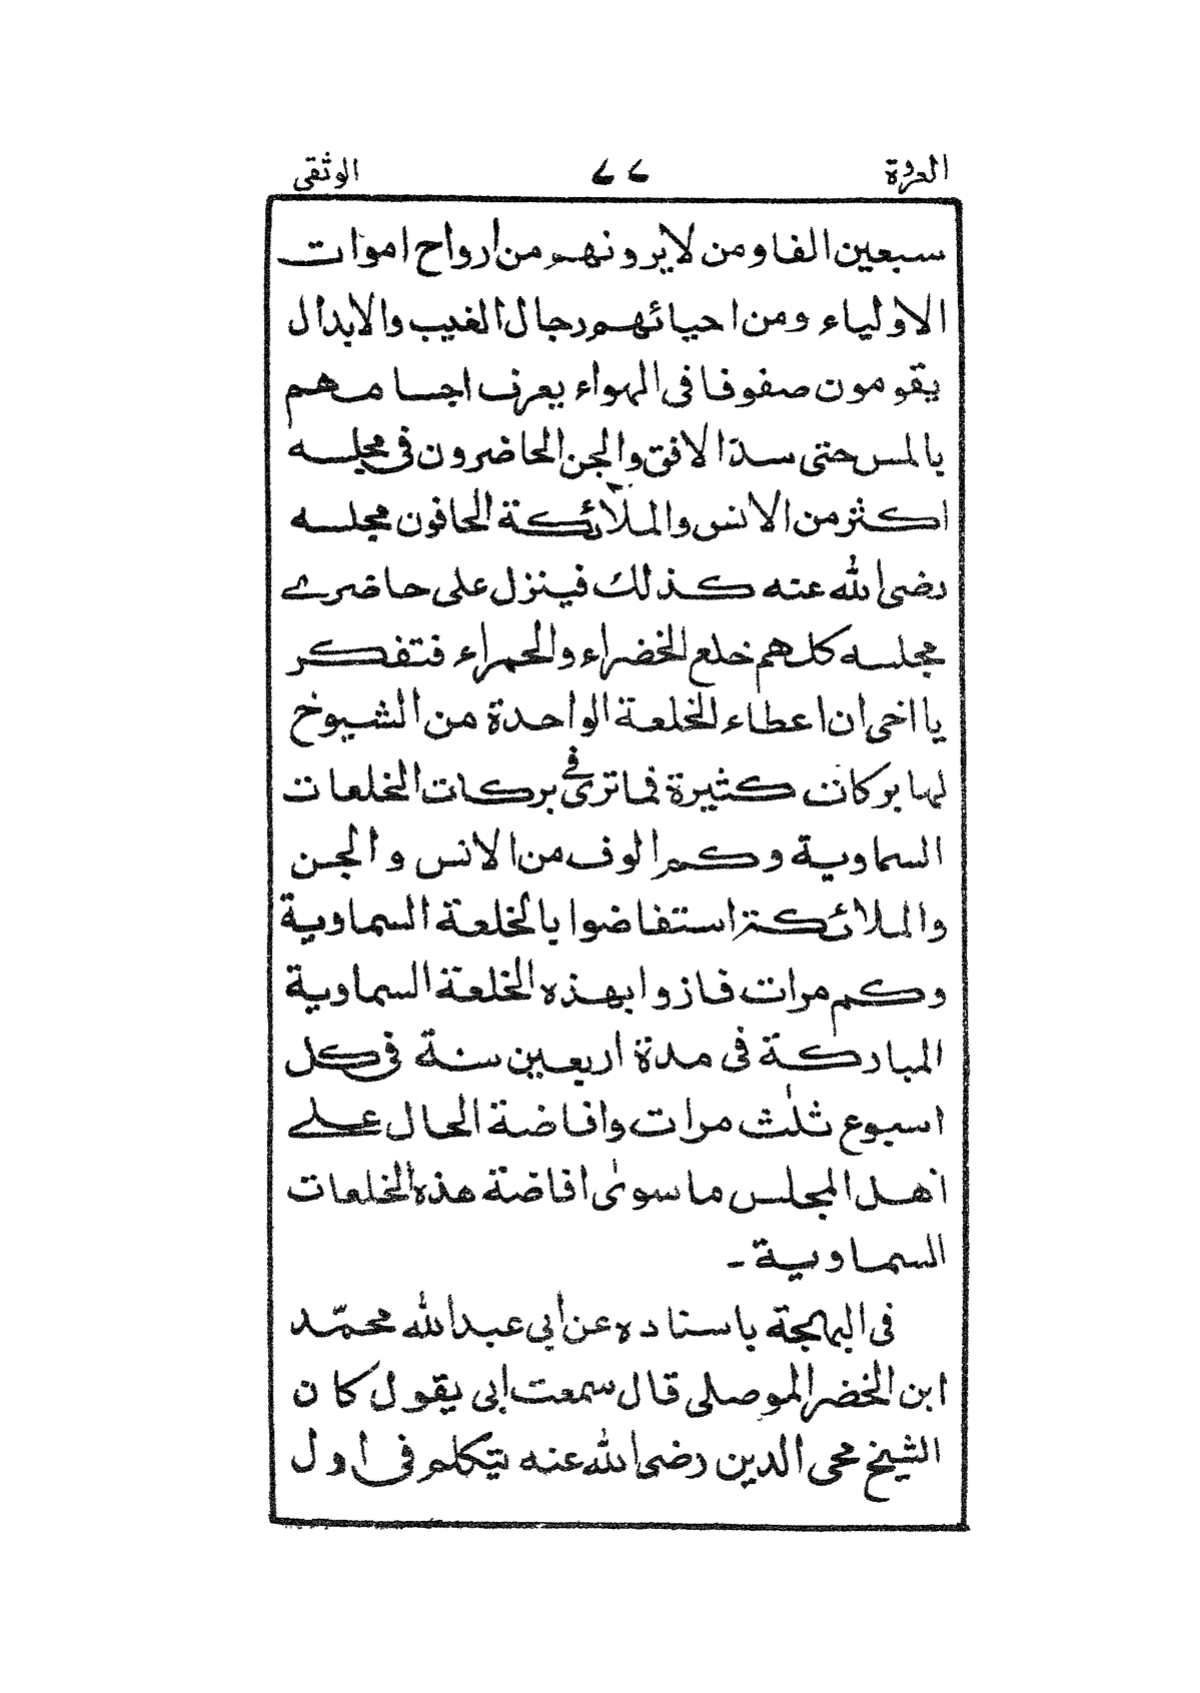 العروة ٧٧ الوثقى
سبعين الفا ومن لا يرونهم من ارواح اموات
الاولياء ومن احيائهم رجال الغيب والابدال
يقومون صفوفا فى الهواء يعرف اجسامهم
بالمس حتى سدّ الافق والجن الحاضرون فى مجلسه
اكثر من الانس والملائكة الحافون مجلسه
رضى الله عنه كذلك فينزل على حاضرے
مجلسه كلهم خلع الخضراء والحمراء فتفكر
يا اخى ان اعطاء الخلعة الواحدة من الشيوخ
لها بركات كثيرة فما ترى فى بركات الخلعات
السماوية وكم الوف من الانس والجن
والملائكة استفاضوا بالخلعة السماوية
وكم مرات فازوا بهذه الخلعة السماوية
المباركة فى مدة اربعين سنة فى كل
اسبوع ثلٰث مرات وافاضة الحال علے
اهل المجلس ما سوىٰ افاضة هذه الخلعات
السماوية ۔
فى البهجة باسناده عن أبي عبد الله محمّد
ابن الخضر الموصلى قال سمعت ابى يقول كان
الشيخ محى الدين رضى الله عنه يتكلم فى اول